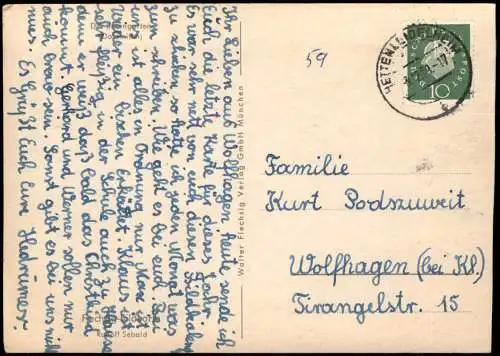 Ihr Lieben aus Wolfhagen, heute sende ich
Euch die letzte Karte für dieses Jahr.
Es war sehr nett von euch diesen Filakalen
zu schicken so hatte ich jeden Monat was
zum schreiben. Wie geht es bei euch? Bei
uns ist alles in Ordnung nur Max ist
wieder ein bischen erkältet. Klaus ist
sehr fleißig in der Schule auch zu Hause
denn er weiß daß bald das Christkind
kommt. Gerhard und Werner sollen nur
auch brav sein. Sonst gibt es bei uns nichts
neues. Es Grüßt Euch Eure Hedrun
59
HETTENLEIDELHEIM
10
Familie
Kurt Podszuweit
Wolfhagen (bei Kl.)
Tirangelstr. 15
Walter Flechsig Verlag GmbH München
Rudolf Sebald